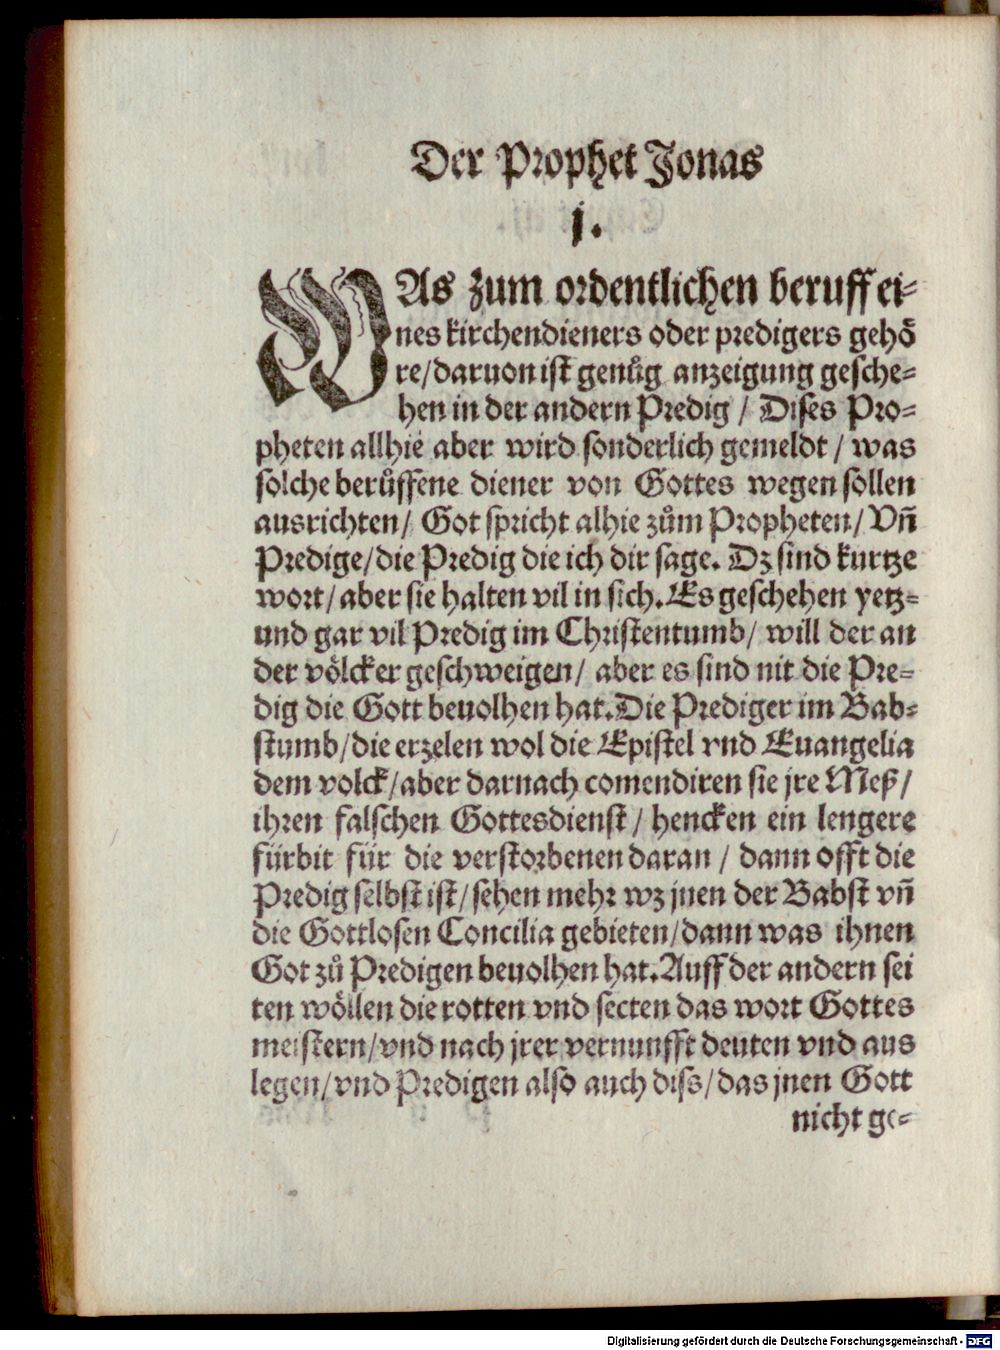 Der Prophet Jonas
j.
WAs zum ordentlichen beruff ei⸗
nes kirchendieners oder predigers gehoͤ
re/daruon ist genuͦg anzeigung gesche⸗
hen in der andern Predig / Dises Pro⸗
pheten allhie aber wird sonderlich gemeldt / was
solche beruͦffene diener von Gottes wegen sollen
ausrichten/ Got spricht alhie zuͦm Propheten/ Vñ
Predige/die Predig die ich dir sage. Dz sind kurtze
wort/ aber sie halten vil in sich. Es geschehen yetz⸗
und gar vil Predig im Christentumb/ will der an
der voͤlcker geschweigen/ aber es sind nit die Pre⸗
dig die Gott beuolhen hat. Die Prediger im Bab⸗
stumb/die erzelen wol die Epistel vnd Euangelia
dem volck/aber darnach comendiren sie jre Meß/
ihren falschen Gottesdienst / hencken ein lengere
fürbit für die verstorbenen daran / dann offt die
Predig selbst ist/ sehen mehr wz jnen der Babst vñ
die Gottlosen Concilia gebieten/dann was ihnen
Got zuͦ Predigen beuolhen hat. Auff der andern sei
ten woͤllen die rotten vnd secten das wort Gottes
meistern/vnd nach jrer vernunfft deuten vnd aus
legen/vnd Predigen also auch diss/das jnen Gott
nicht ge⸗
Digitalisierung gefördert durch die Deutsche Forschungsgemeinschaft - DFG